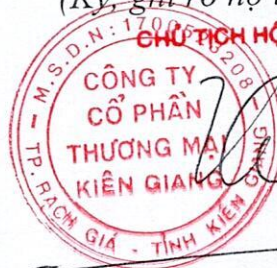 (Ký, ghi rõ họ
CHỦ TỊCH HỘ
M.S.D.N: 1700
208
CÔNG TY
CỔ PHẦN
THƯƠNG MẠI
KIÊN GIANG
TP. RẠCH GIÁ - TỈNH KIÊN GIANG